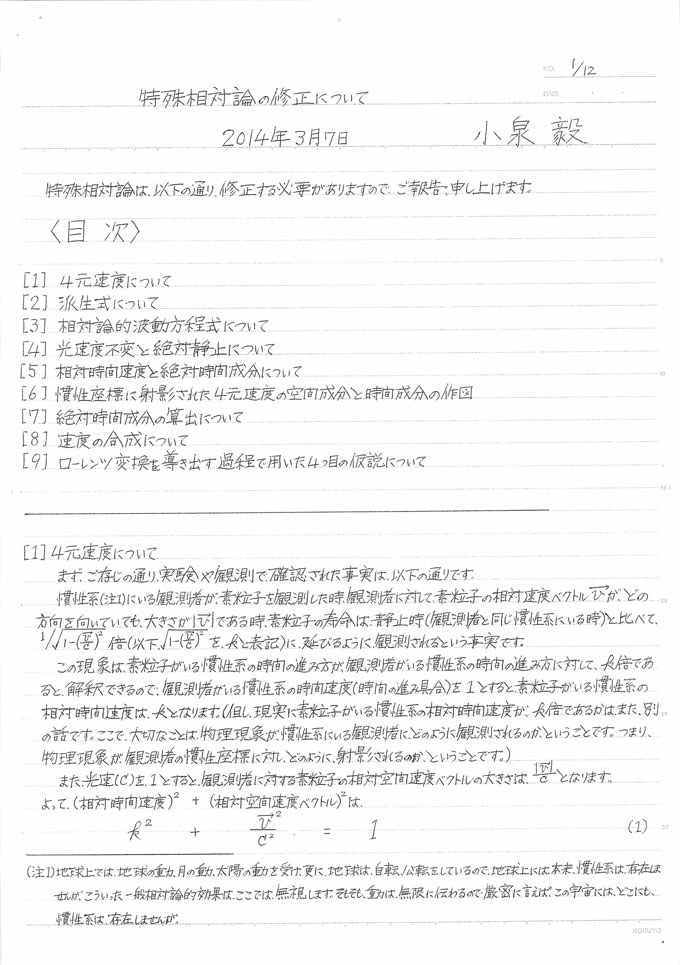 NO. 1/12
DATE
特殊相対論の修正について
2014年3月7日 小泉 毅
特殊相対論は、以下の通り、修正する必要がありますので、ご報告、申し上げます。
〈目 次〉
[1] 4元速度について
[2] 派生式について
[3] 相対論的波動方程式について
[4] 光速度不変と絶対静止について
[5] 相対時間速度と絶対時間成分について
[6] 慣性座標に射影された4元速度の空間成分と時間成分の作図
[7] 絶対時間成分の算出について
[8] 速度の合成について
[9] ローレンツ変換を導き出す過程で用いた4つ目の仮説について
[1] 4元速度について
まず、ご存じの通り、実験や観測で、確認された事実は、以下の通りです。
慣性系(注1)にいる観測者が、素粒子を観測した時、観測者に対して、素粒子の相対速度ベクトルv⃗が、どの
方向を向いていても、大きさが|v⃗|である時、素粒子の寿命は、静止時(観測者と同じ慣性系にいる時)と比べて、
1/√1-(v⃗/c)² 倍(以下、√1-(v⃗/c)² を、kと表記)に、延びるように、観測されるという事実です。
この現象は、素粒子がいる慣性系の時間の進み方が、観測者がいる慣性系の時間の進み方に対して、k倍であ
ると、解釈できるので、観測者がいる慣性系の時間速度(時間の進み具合)を1とすると、素粒子がいる慣性系の
相対時間速度は、kとなります。(但し、現実に素粒子がいる慣性系の相対時間速度が、k倍であるかは、また、別
の話です。ここで、大切なことは、物理現象が、慣性系にいる観測者に、どのように観測されるのか、ということです。つまり、
物理現象が観測者の慣性座標に対し、どのように、射影されるのか、ということです。)
また、光速(c)を、1とすると、観測者に対する素粒子の相対空間速度ベクトルの大きさは、|v⃗|/cとなります。
よって、(相対時間速度)² + (相対空間速度ベクトル)²は、
k² + v⃗²/c² = 1 (1)
(注1)地球上では、地球の重力、月の重力、太陽の重力を受け、更に、地球は、自転、公転をしているので、地球上には本来、慣性系は、存在しま
せんが、こういった一般相対論的効果は、ここでは、無視します。そもそも、重力は、無限に伝わるので、厳密に言えば、この宇宙には、どこにも、
慣性系は、存在しませんが。
KOKUYO